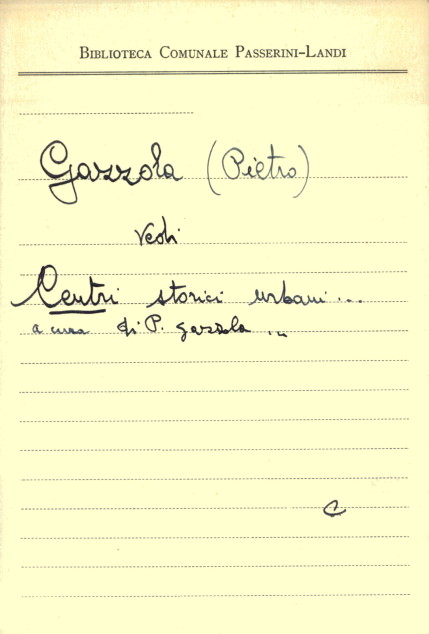 BIBLIOTECA COMUNALE PASSERINI-LANDI
Gazzola (Pietro)
Vedi
Centri storici urbani...
a cura di P. Gazzola ...
C